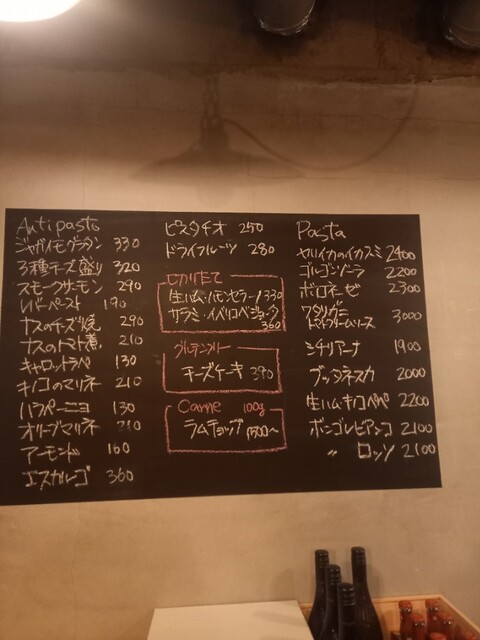 Antipasto
ジャガイモグラタン 330
3種チーズ盛り 320
スモークサーモン 290
レバーペースト 190
ナスのチーズ焼 290
ナスのトマト煮 210
キャロットラペ 130
キノコのマリネ 210
ハラペーニョ 130
オリーブマリネ 210
アーモンド 160
エスカルゴ 360
ピスタチオ 250
ドライフルーツ 280
セカリたて
生ハム・ハモンセラーノ 330
サラミ・イベリコベジョータ
360
グルテンフリー
チーズケーキ 390
Carne 100g
ラムチョップ 1500〜
Pasta
ヤリイカのイカスミ 2400
ゴルゴンゾーラ 2200
ボロネーゼ 2300
ワタリガニ
トマトクリームソース 3000
シチリアーナ 1900
プッタネスカ 2000
生ハムキノコペペ 2200
ボンゴレビアンコ 2100
〃 ロッソ 2100